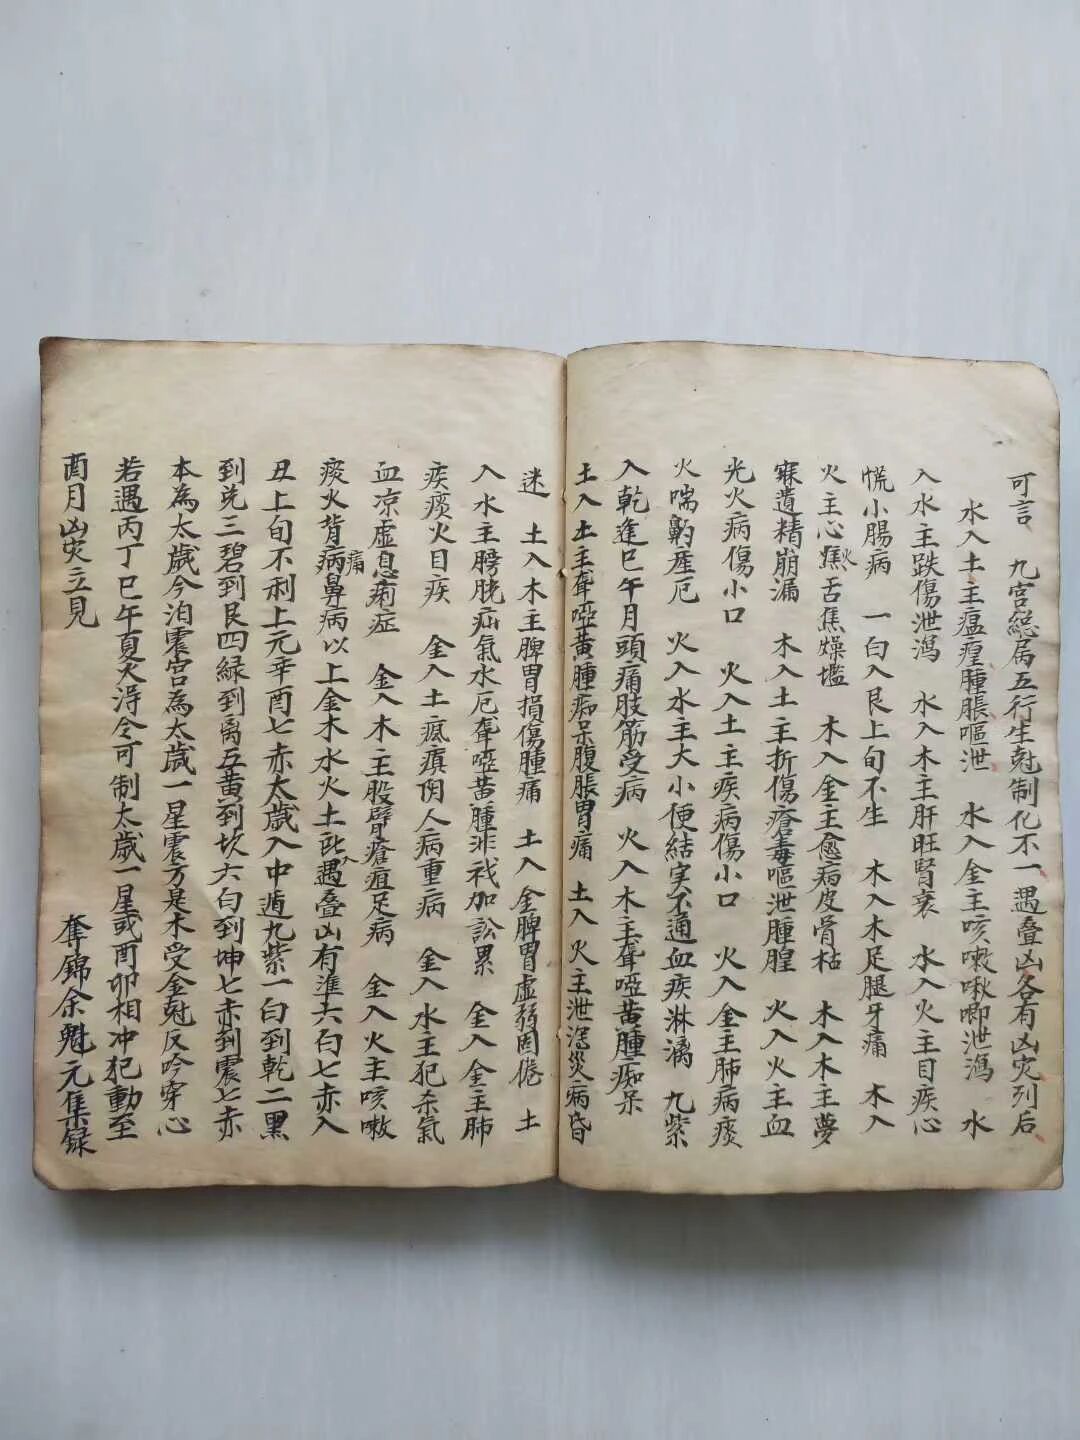 可言　九宮総属五行生尅制化不一遇叠凶各有凶灾列后
水入土主瘟瘽腫脹嘔泄　水入金主咳嗽啾唧泄瀉　水
入水主跌傷泄瀉　水入木主肝旺腎衰　水入火主目疾心
慌小腸病　一白入艮上旬不生　木入木足腿牙痛　木入
火主心焦火舌焦燥　木入金主愈病皮骨枯　木入木主夢
寐遺精崩漏　木入土主折傷瘡毒嘔泄腫膛　火入火主血
光火病傷小口　火入土主疾病傷小口　火入金主肺病痰
火喘齁　厄　火入水主大小便結実不通血疾淋漓　九紫
入乾逢巳午月頭痛肢筋受病　火入木主聋啞黃腫痴呆
土入土主聋啞黃腫痴呆腹脹胃痛　土入火主泄瀉災病昏
迷　土入木主脾胃損傷腫痛　土入金脾胃虛弱困倦　土
入水主膀胱疝氣水厄聋啞黃腫非祸加訟累　金入金主肺
疾痰火目疾　金入土瘋癲陰人病重病　金入水主犯杀氣
血凉虛息痢症　金入木主股臂瘡疽足病　金入火主咳嗽
痰火背痛病鼻病以上金木水火土所遇叠凶有準六白七赤入
丑上旬不利上元辛酉七赤太歲入中遁九紫一白到乾二黑
到兑三碧到艮四緑到离五黃到坎六白到坤七赤到震七赤
本為太歲今泊震宮為太歲一星震方是木受金尅反吟穿心
若遇丙丁巳午夏火淂令可制太歲一星或酉卯相冲犯動至
酉月凶灾立見　奪錦余魁元集録